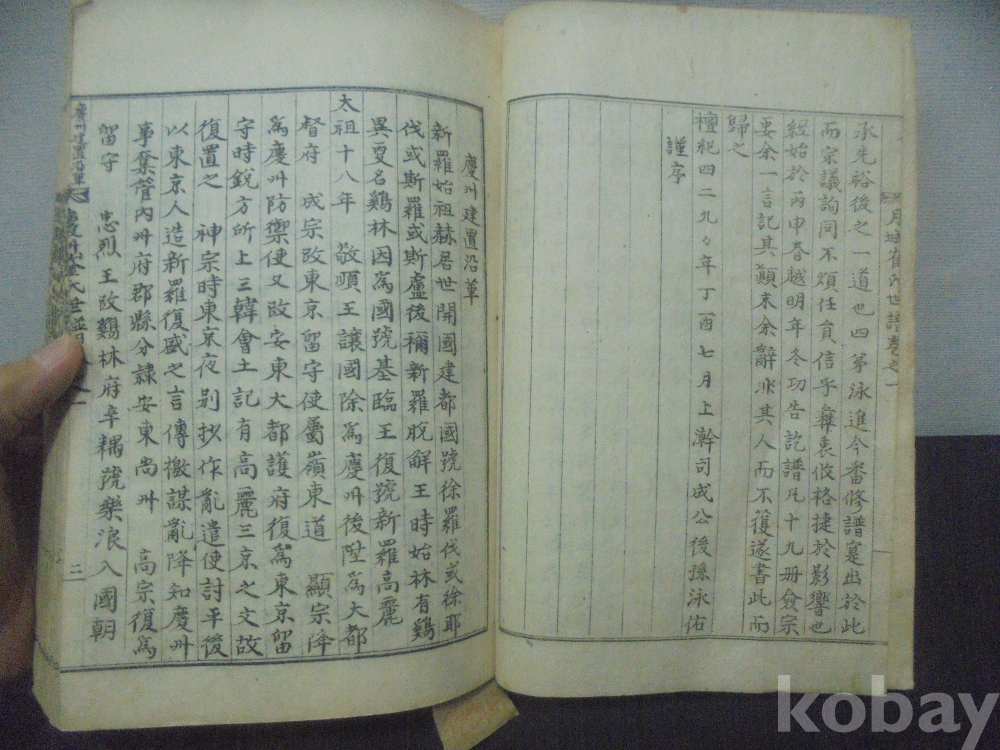 承先裕後之一道也四茅泳進今番修譜寔出於此
而宗議詢同不煩任負信乎彛衷攸格捷於影響也
經始於丙申春越明年冬功告訖譜凡十九冊僉宗
要余一言記其顚末余辭非其人而不獲遂書此而
歸之
檀紀四二九〻年丁酉七月上澣司成公後孫泳佑
謹序
月城崔氏世譜卷之一
一
慶州建置沿革
新羅始祖赫居世開國建都國號徐羅伐或徐耶
伐或斯羅或斯盧後稱新羅脫解王時始林有鷄
異更名鷄林因爲國號基臨王復號新羅高麗
太祖十八年 敬順王讓國除爲慶州後陞爲大都
督府 成宗改東京留守使屬嶺東道 顯宗降
爲慶州防禦使又改安東大都護府復爲東京留
守時銳方所上三韓會土記有高麗三京之文故
復置之 神宗時東京夜別抄作亂遣使討平後
以東京人造新羅復盛之言傳檄謀亂降知慶州
事奪管內州府郡縣分隷安東尙州 高宗復爲
留守 忠烈王改鷄林府卒耦號樂浪入國朝
慶州建置沿革
二
kobay